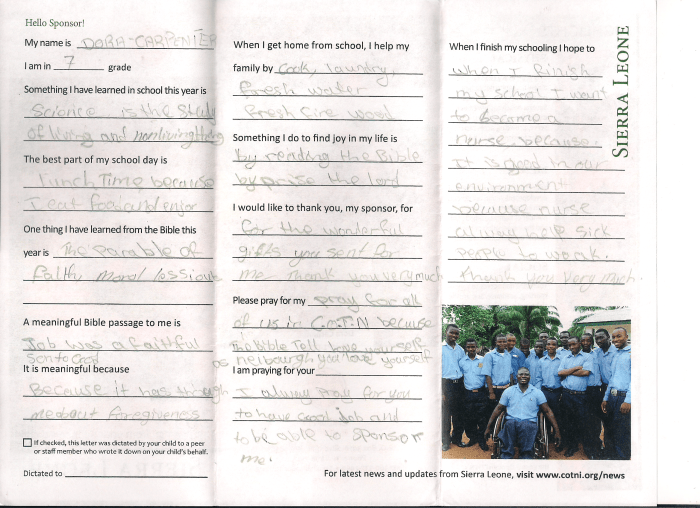 Hello Sponsor!
My name is DORA-CARPENTER
I am in 7 grade
Something I have learned in school this year is
Science is the Study
of living and nonliving thing
The best part of my school day is
lunch Time because
I eat food and enjoy
One thing I have learned from the Bible this
year is The Parable of
faith, moral
A meaningful Bible passage to me is
Job was a faithful
Son to God
It is meaningful because
Because it has through
me about foregiveness
If checked, this letter was dictated by your child to a peer
or staff member who wrote it down on your child's behalf.
Dictated to
When I get home from school, I help my
family by Cook, laundry,
fresh water
fresh fire wood
Something I do to find joy in my life is
by reading the Bible
by praise the lord
I would like to thank you, my sponsor, for
for the wonderful
gifts you sent for
me thank you very much
Please pray for my pray for all
of us in C.O.T.N because
The Bible Tell love yourself
neibourgh you love yourself
I am praying for your
I alway Pray for you
to have Good Job and
to be able to sponsor
me.
When I finish my schooling I hope to
When I finish
my school I want
to become a
nurse because
It is good in our
environment
because nurse
alway help sick
people to work.
thank you very much.
SIERRA LEONE
For latest news and updates from Sierra Leone, visit www.cotni.org/news